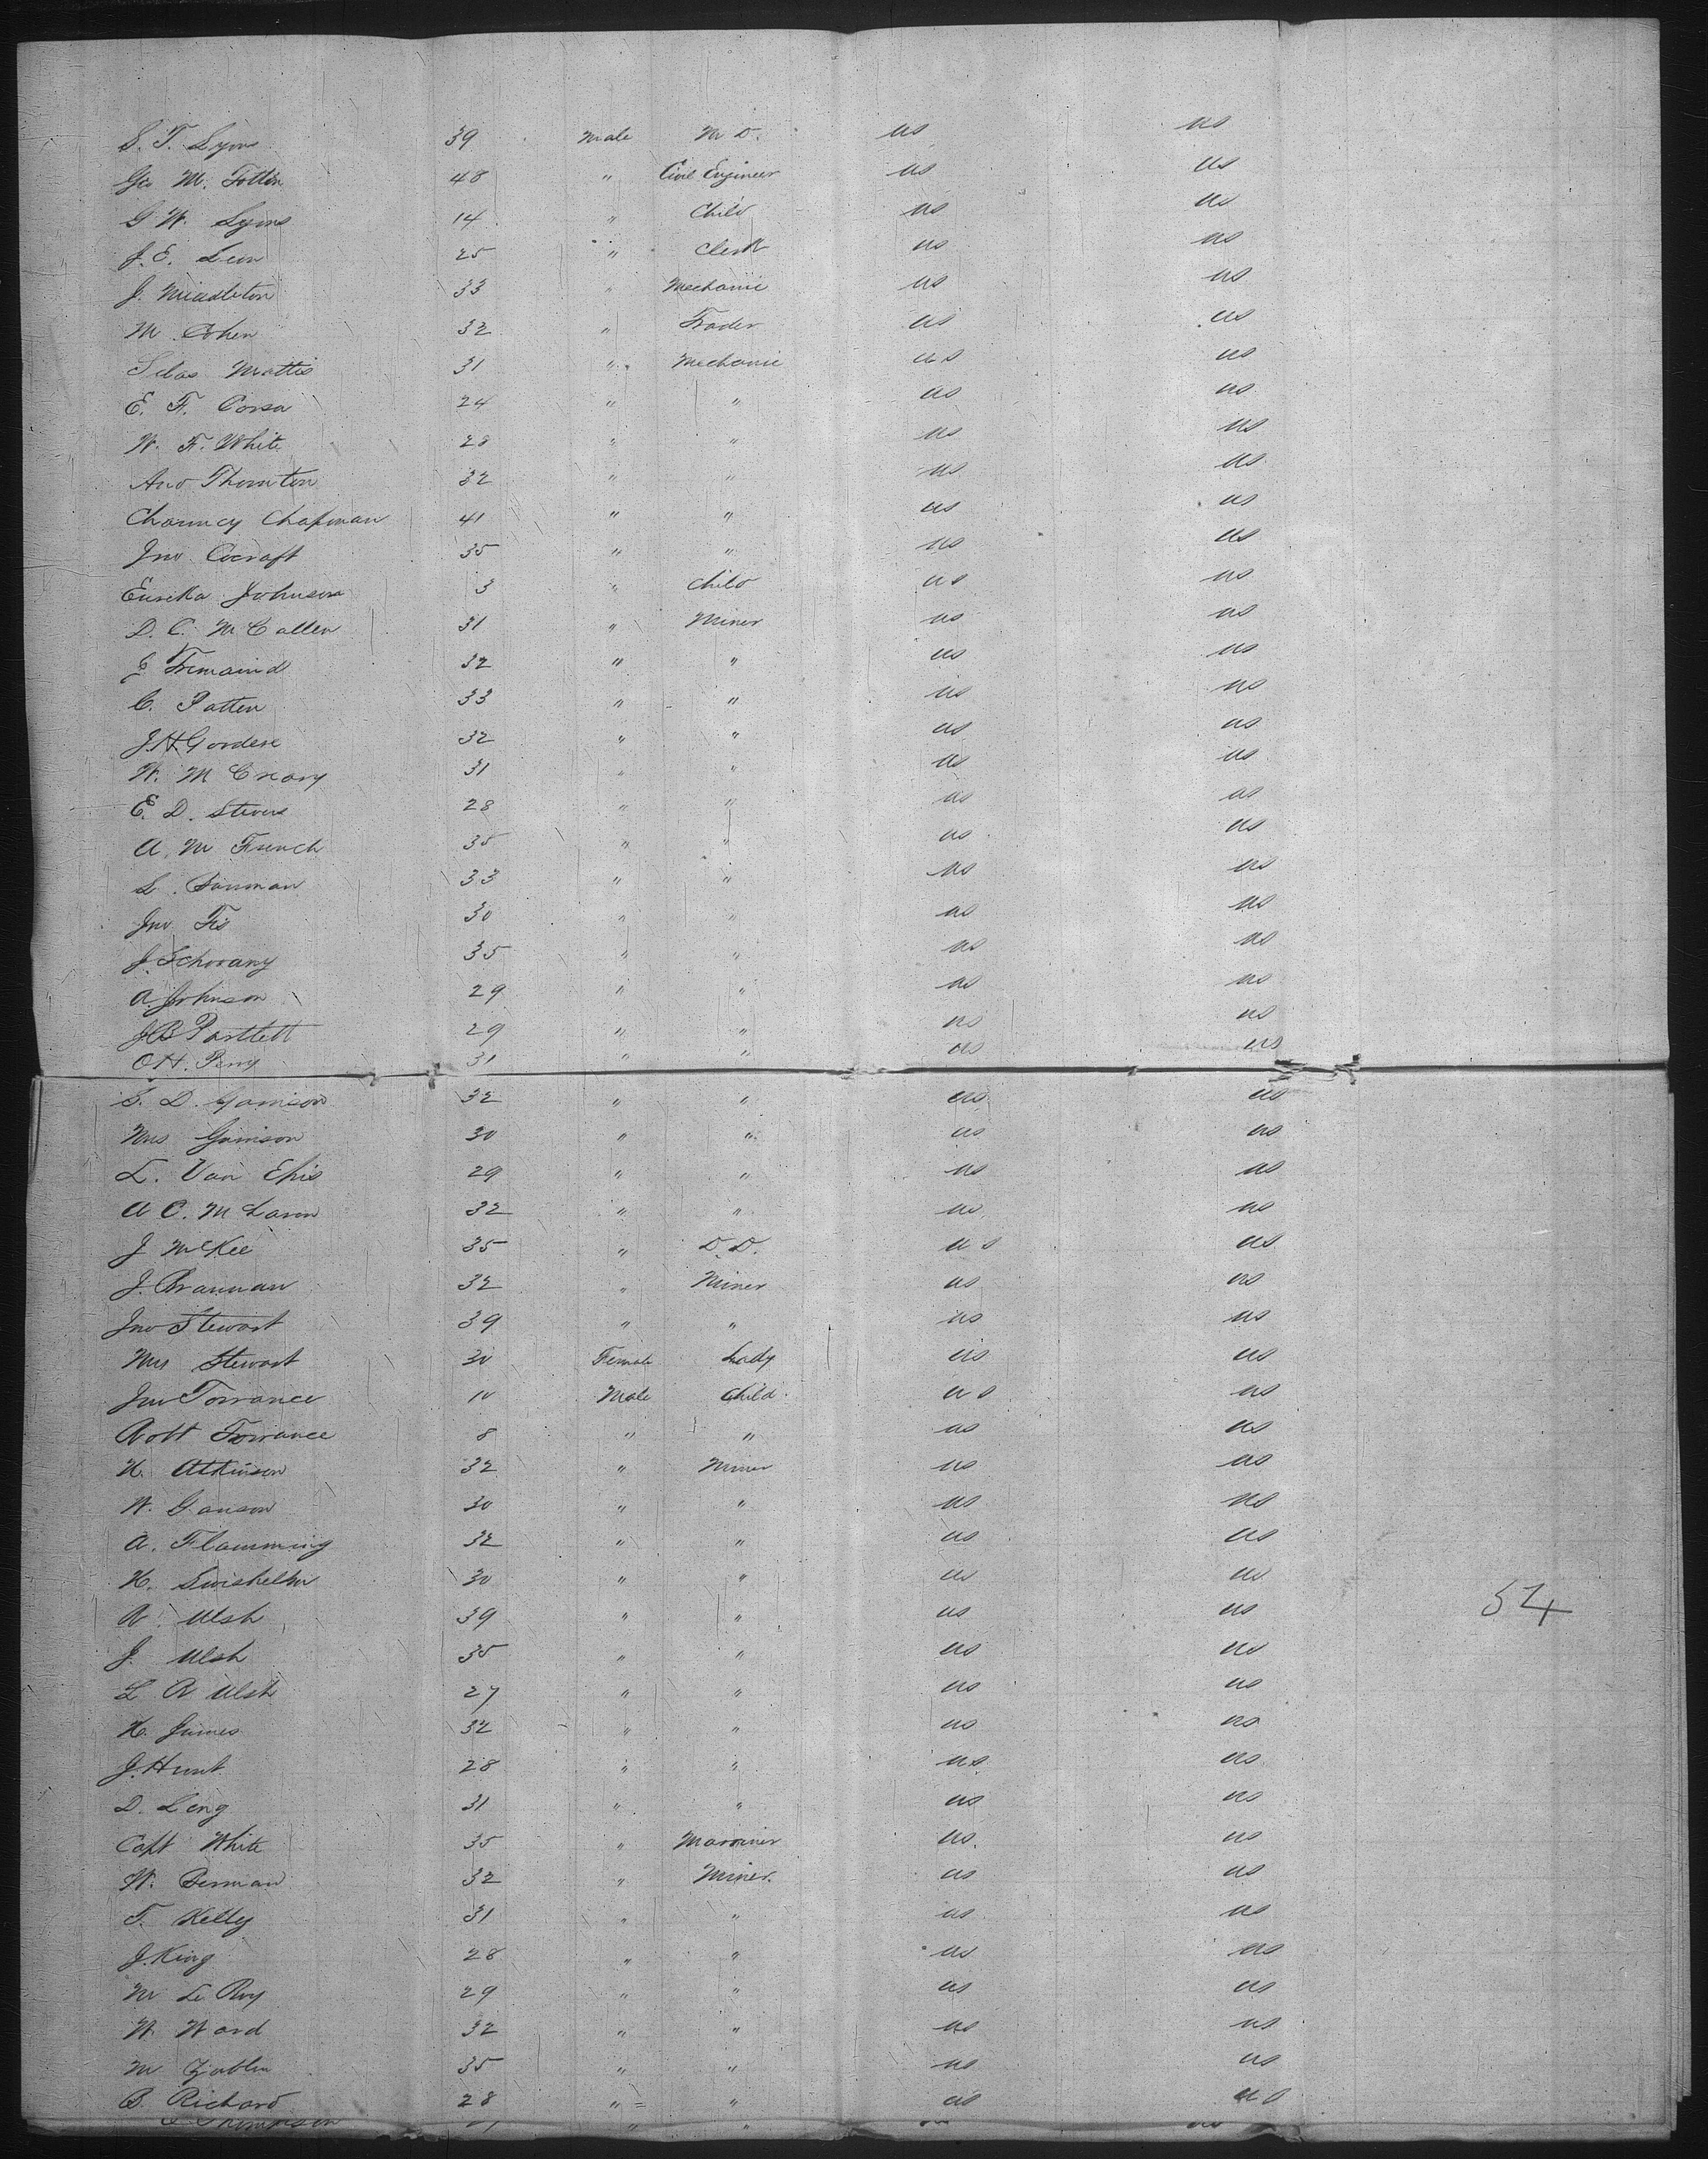 S. T. Lyons 39 Male M D. US US
Geo M. Totten 48 " Civil Engineer US US
G W. Lyons 14 " Child US US
J. E. Leon 25 " Clerk US US
J. Middleton 33 " Mechanic US US
M. Cohen 32 " Trader US US
Silas Mattis 31 " Mechanic US US
E. F. Corsa 24 " " US US
W. F. White 28 " " US US
And Thornton 32 " " US US
Chauncy Chapman 41 " " US US
Jno Cocraft 35 " " US US
Eureka Johnson 3 " Child US US
D. C. McCallen 31 " Miner US US
Tremaind 32 " " US US
C. Patten 33 " " US US
J. H. Gordese 32 " " US US
W. McCreary 31 " " US US
E. D. Stevens 28 " " US US
A. M French 35 " " US US
L. 33 " " US US
Jno Tis 30 " " US US
J. Schorany 35 " " US US
A. Johnson 29 " " US US
J B Partlett 29 " " US US
O H. Perry 31 " " US US
D. Garrison 32 " " US US
Mrs Garrison 30 " " US US
L. Van Epis 29 " " US US
A C. McLaren 32 " " US US
J McKee 35 " D. D. US US
J. Brannan 32 " Miner US US
Jno Stewart 39 " " US US
Mrs Stewart 30 Female Lady US US
Jno Torrance 10 Male Child US US
Robt Torrance 8 " " US US
H. Atkinson 32 " Miner US US
W. Ganson 30 " " US US
A. Flamming 32 " " US US
H. Swishelm 30 " " US US
R. Ulsh 39 " " US US
54
J. Ulsh 35 " " US US
L R Ulsh 27 " " US US
H. James 32 " " US US
J. Hunt 28 " " US US
D. Ling 31 " " US US
Capt White 35 " Marriner US US
W. 32 " Miner. US US
T. Kelly 31 " " US US
J. King 28 " " US US
M Le Roy 29 " " US US
W Ward 32 " " US US
M 35 " " US US
B. Richard 28 " " US US
Thompson " "